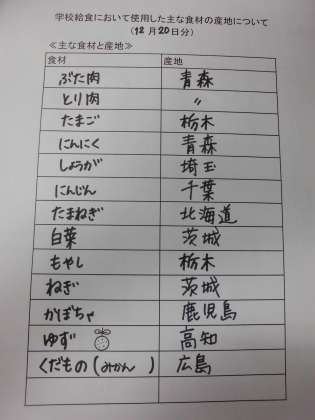 学校給食において使用した主な食材の産地について
（12月20日分）
≪主な食材と産地≫
食材 産地
ぶた肉 青森
とり肉 〃
たまご 栃木
にんにく 青森
しょうが 埼玉
にんじん 千葉
たまねぎ 北海道
白菜 茨城
もやし 栃木
ねぎ 茨城
かぼちゃ 鹿児島
ゆず 高知
くだもの（みかん ） 広島